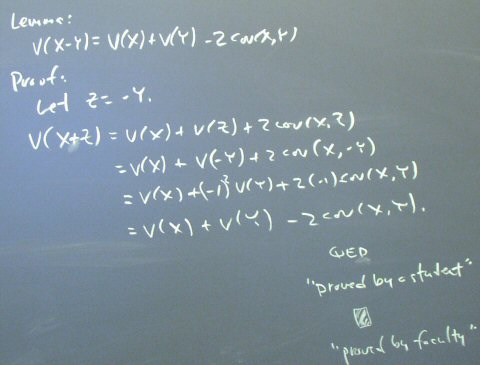 Lemma:
V(X-Y) = V(X) + V(Y) - 2 cov(X,Y)
Proof:
Let Z = -Y.
V(X+Z) = V(X) + V(Z) + 2 cov(X,Z)
= V(X) + V(-Y) + 2 cov(X,-Y)
= V(X) + (-1)² V(Y) + 2(-1) cov(X,Y)
= V(X) + V(Y) - 2 cov(X,Y).
QED
"proved by a student"
"proved by faculty"